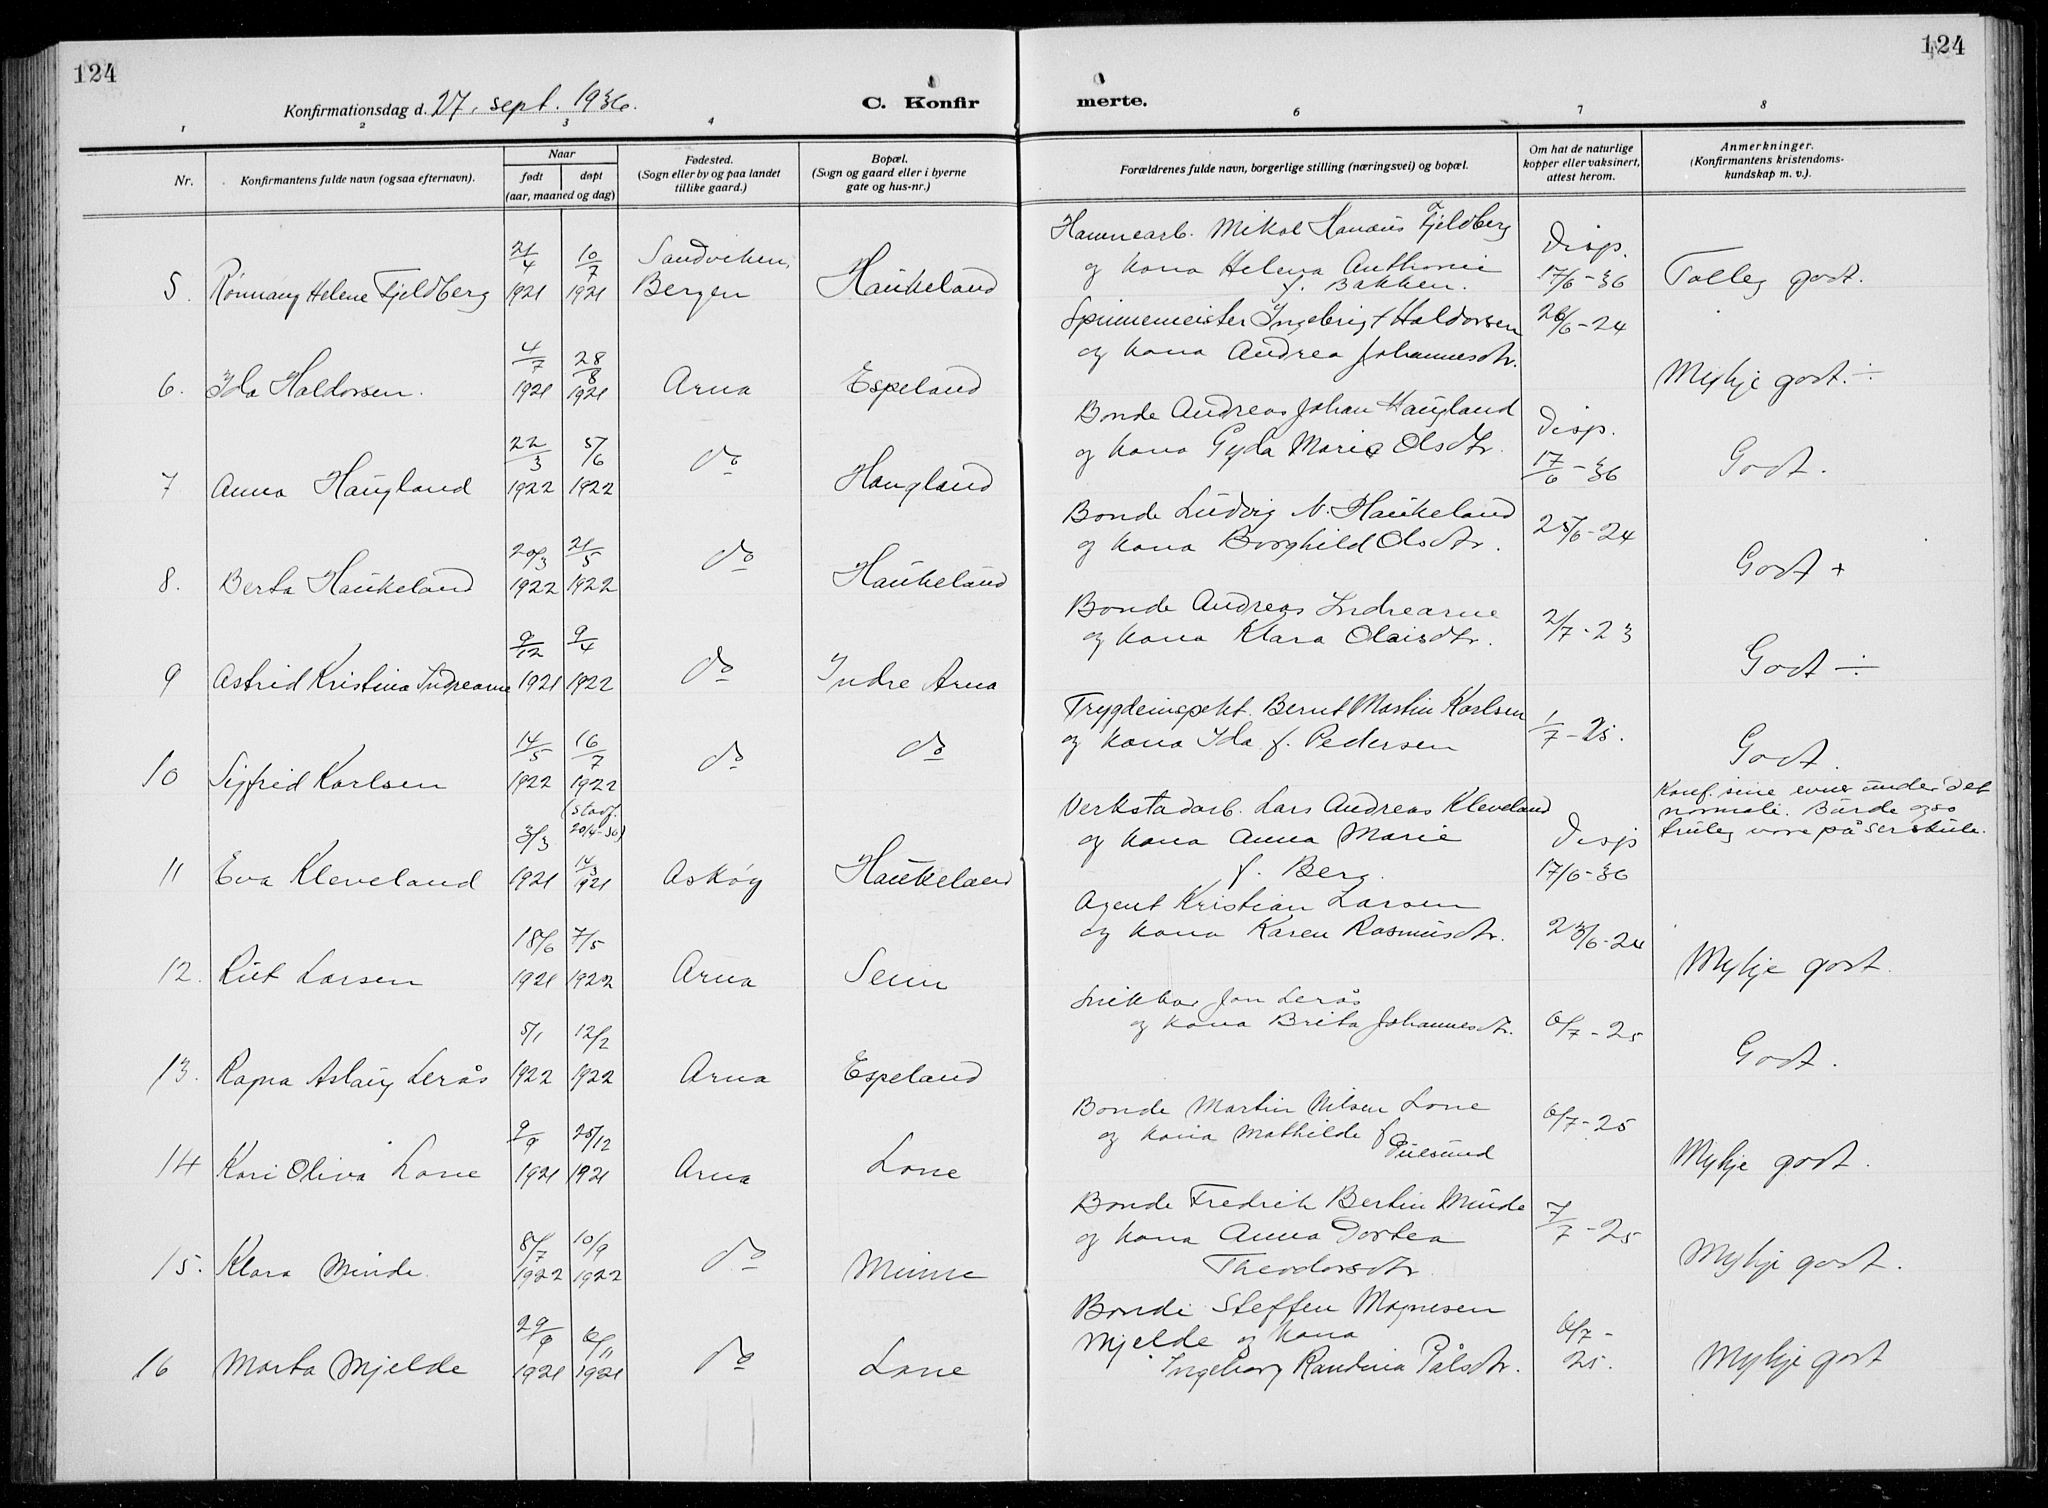 124
124
Konfirmationsdag d. 27. sept. 1936.
C. Konfir
merte.
1 2 3 4 6 7 8
Nr.
Konfirmantens fulde navn (ogsaa efternavn).
Naar
født
døpt
(aar, maaned og dag)
Fødested.
(Sogn eller by og paa landet
tillike gaard.)
Bopæl.
(Sogn og gaard eller i byerne
gate og hus-nr.)
Forældrenes fulde navn, borgerlige stilling (næringsvei) og bopæl.
Om hat de naturlige
kopper eller vaksinert,
attest herom.
Anmerkninger.
(Konfirmantens kristendoms-
kundskap m. v.).
5. Rønnaug Helene Fjeldberg 21/4 1921 10/7 1921 Sandviken, Bergen Haukeland
Havnearb. Mikal Fjeldberg
og kona Helena Anthonie
f. Bakken.
Disp. 17/6-36
Talleg godt.
6. Ida Haldorsen. 4/7 1921 28/8 1921 Arna Espeland
Spinnemeister Ingebrigt Haldorsen
og kona Andrea Johannesdtr.
26/6-24
Mykje godt. ÷
7 Anna Haugland 22/3 1922 5/6 1922 do Haugland
Bonde Andreas Johan Haugland
og kona Gyda Marie Olsdtr.
Disp. 17/6-36
Godt.
8. Berta Haukeland 20/3 1922 21/5 1922 do Haukeland
Bonde Ludvig N. Haukeland
og kona Borghild Olsdtr.
25/6-24
Godt +
9 Astrid Kristina Indrearne 9/12 1921 9/4 1922 do Indre Arna
Bonde Andreas Indrearne
og kona Klara Olaisdtr.
2/7-23
Godt ÷
10 Sigfrid Karlsen 14/5 1922 16/7 1922 do do
Trygdeinspekt. Bernt Martin Karlsen
og kona Ida f. Pedersen
1/7-25.
Godt.
11 Eva Kleveland 3/3 1921 (Stadf. 20/4-36) 14/3 1921 Askøy Haukeland
Verkstadarb. Lars Andreas Kleveland
og kona Anna Marie
f. Berg.
Disp 17/6-36
Konf. sine evner under det
normale. Burde også
truleg vore på serskule.
12. Rut Larsen 18/6 1921 7/5 1922 Arna Seim
Agent Kristian Larsen
og kona Karen Rasmusdtr.
23/6-24
Mykje godt.
13. Ragna Aslaug Lerås 5/1 1922 12/2 1922 Arna Espeland
Snikkar Jon Lerås
og kona Brita Johannesdtr.
6/7-25
Godt.
14 Kari Oliva Lone 9/9 1921 25/12 1921 Arna Lone
Bonde Martin Nilsen Lone
og kona Mathilde f.
6/7-25
Mykje godt.
15. Klara Minde. 8/7 1922 10/9 1922 do Minne
Bonde Fredrik Bertin Minde
og kona Anna Dortea
Theodorsdtr.
7/7-25
Mykje godt.
16 Marta Mjelde 29/9 1921 6/11 1921 do Lone
Bonde Steffen Magnesen
Mjelde og kona
Ingeborg Randina Pålsdtr.
6/7-25.
Mykje godt